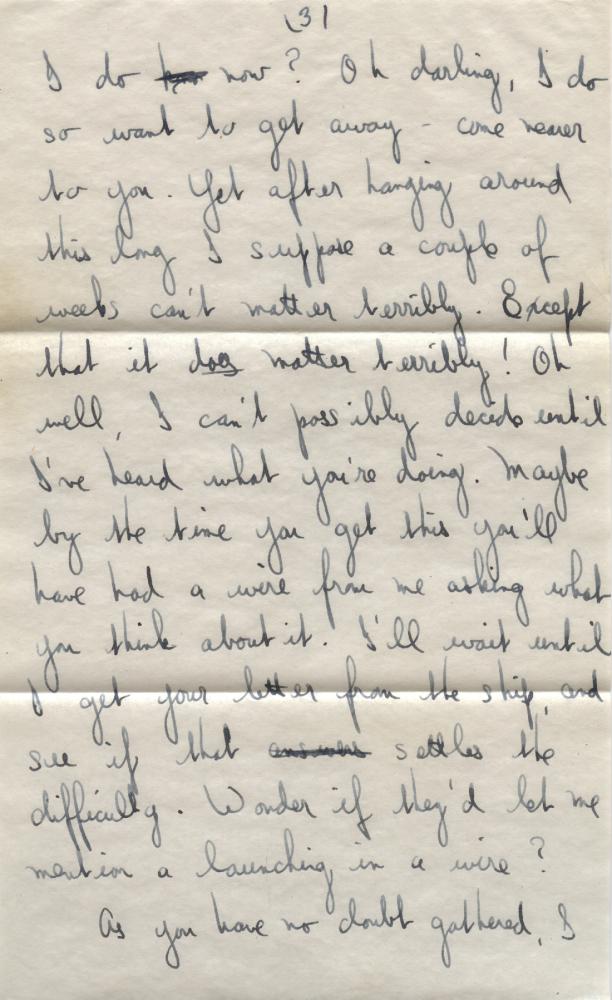 (3)
I do now? Oh darling, I do
so want to get away - come nearer
to you. Yet after hanging around
this long I suppose a couple of
weeks can't matter terribly. Except
that it does matter terribly! Oh
well, I can't possibly decide until
I've heard what you're doing. Maybe
by the time you get this you'll
have had a wire from me asking what
you think about it. I'll wait until
I get your letter from the ship, and
see if that answers settles the
difficulty. Wonder if they'd let me
mention a launching in a wire?
As you have no doubt gathered, I